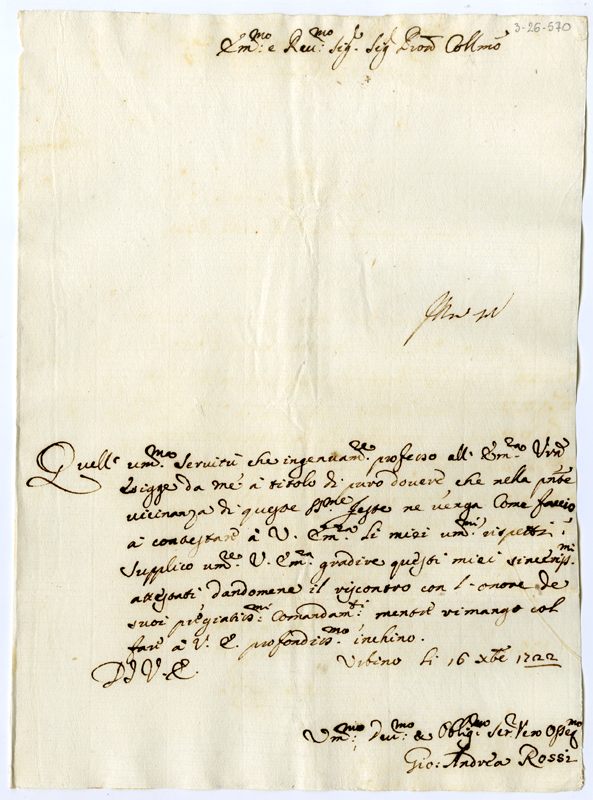 3-26-570
Em:mo e Rev:mo Sig.r Sig.r Pron Collmo
Quell' um:mo servitù che ingenuam:te professo all' Em:za Vra
esigge da me à titolo di puro dovere che nella pnte
vicinanza di queste SSme Feste ne venga Come faccio
a contestare à V. Em:za li miei um:mi rispetti, è
supplico um:te V. Em:za gradire questi miei sinceriss:mi
attestati dandomene il riscontro con l'onore de
suoi pregiatis:mi Comandam:ti mentre rimango col
fare à V. E. profondis:mo inchino.
Urbino li 16 Xbre 1722
D. V. E.
Um:mo Dev:mo & Oblig:mo Ser. Vero Osseq:mo
Gio: Andrea Rossi